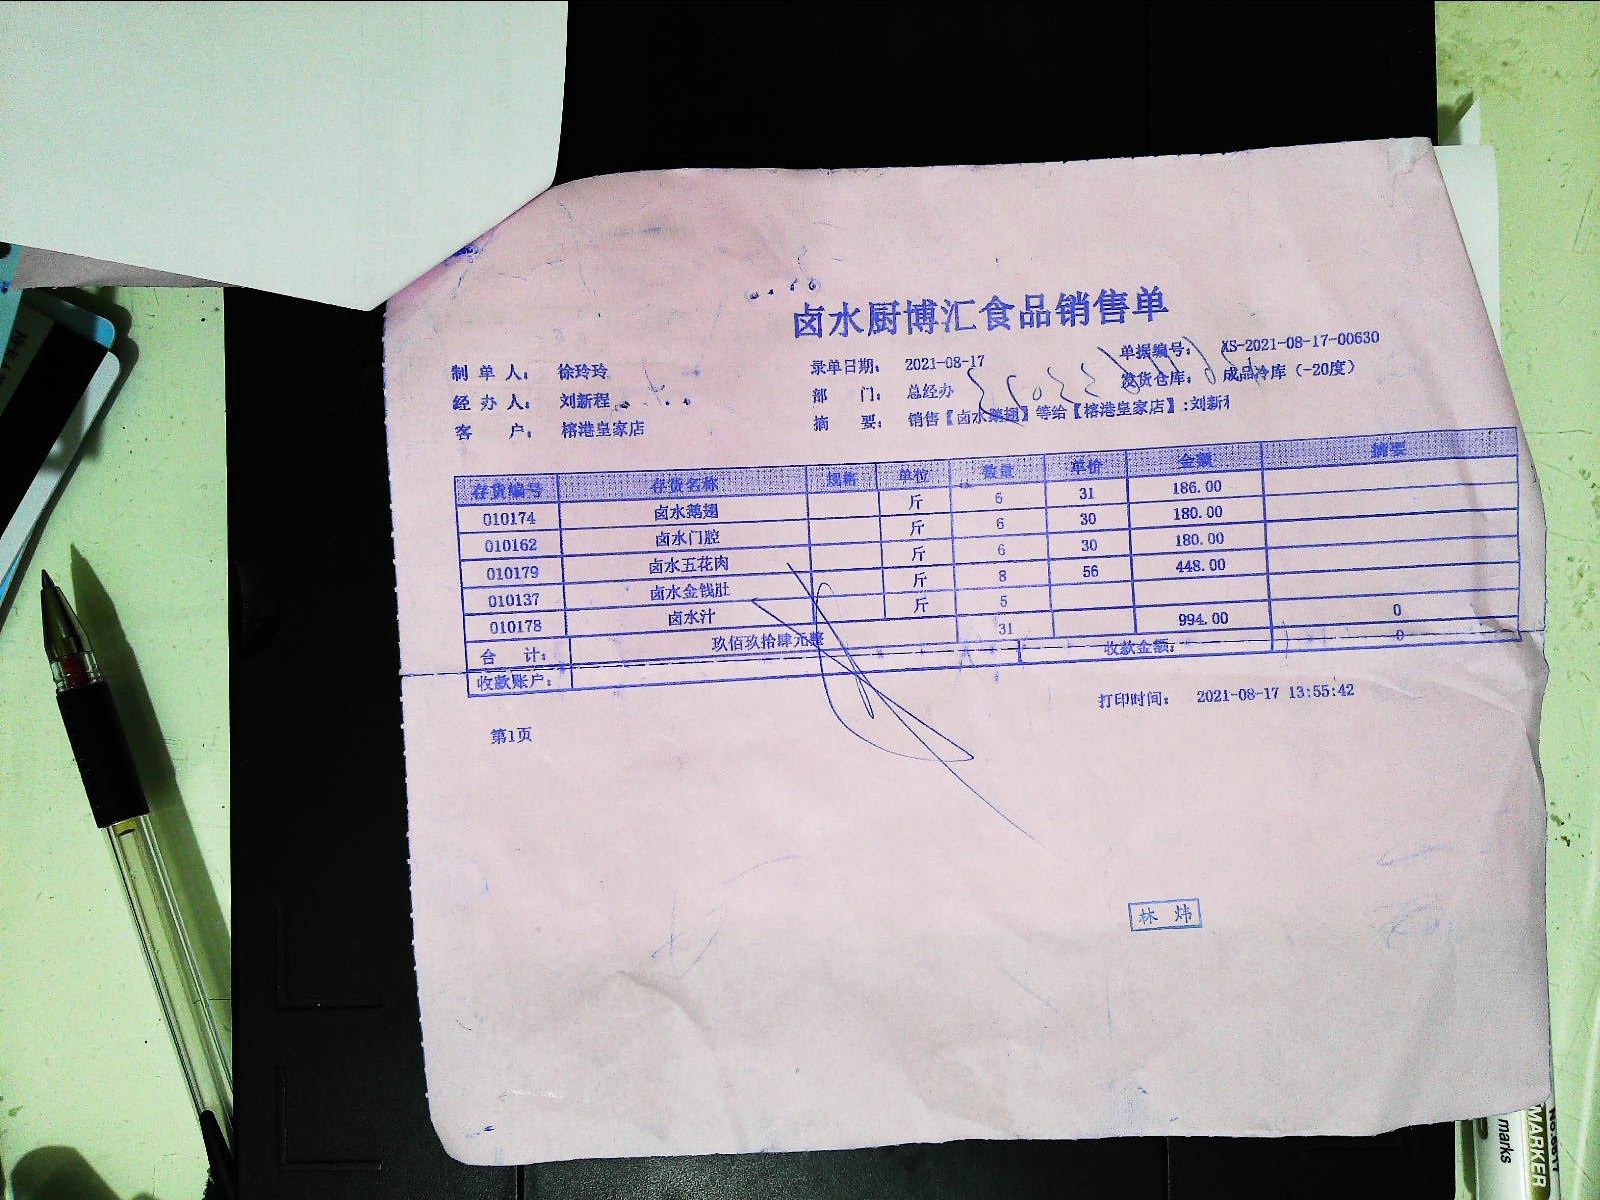 卤水厨博汇食品销售单
制单人： 徐玲玲 录单日期： 2021-08-17 单据编号： XS-2021-08-17-00630
经办人： 刘新程 部 门： 总经办 发货仓库： 成品冷库（-20度）
客 户： 榕港皇家店 摘 要： 销售【卤水鹅翅】等给【榕港皇家店】:刘新程
存货编号 存货名称 规格 单位 数量 单价 金额 摘要
010174 卤水鹅翅 斤 6 31 186.00
010162 卤水门腔 斤 6 30 180.00
010179 卤水五花肉 斤 6 30 180.00
010137 卤水金钱肚 斤 8 56 448.00
010178 卤水汁 斤 5
合 计： 玖佰玖拾肆元整 31 994.00 0
收款账户： 收款金额： 0
第1页 打印时间： 2021-08-17 13:55:42
林 炜
MARKER
marks